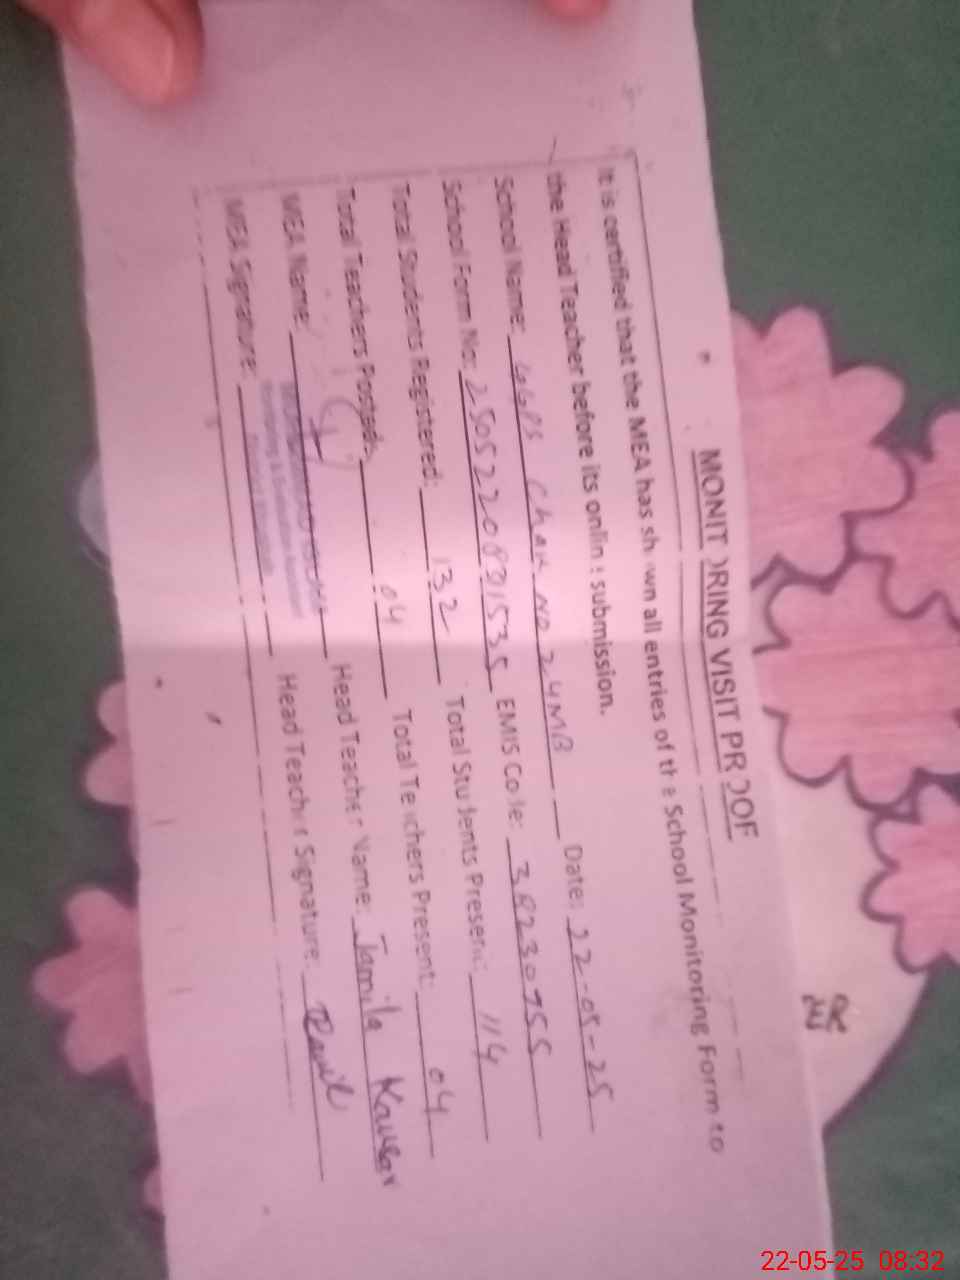 MONITORING VISIT PROOF
It is certified that the MEA has shown all entries of the School Monitoring Form to
the Head Teacher before its online submission.
School Name: GGPS Chak NO 24MB Date: 22-05-25
School Form No: 2505220831535 EMIS Code: 38230755
Total Students Registered: 132 Total Students Present: 114
Total Teachers Posted: 04 Total Teachers Present: 04
MEA Name: Head Teacher Name: Jamila Kausar
MEA Signature: Head Teacher Signature:
22-05-25 08:32